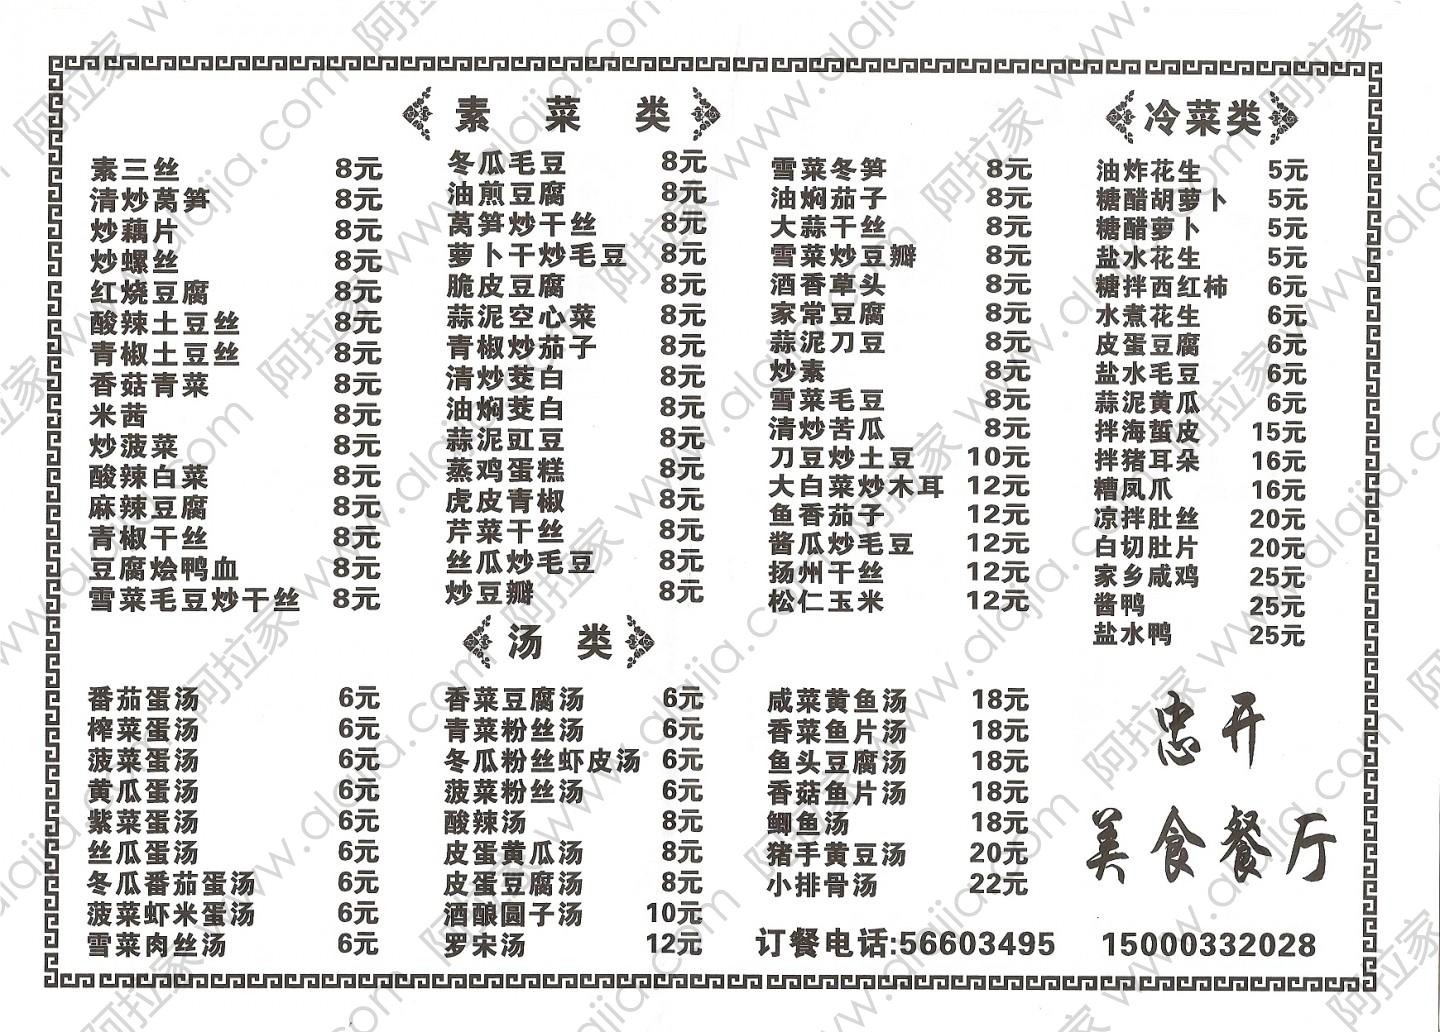 素菜类
素三丝 8元
清炒莴笋 8元
炒藕片 8元
炒螺丝 8元
红烧豆腐 8元
酸辣土豆丝 8元
青椒土豆丝 8元
香菇青菜 8元
米茜 8元
炒菠菜 8元
酸辣白菜 8元
麻辣豆腐 8元
青椒干丝 8元
豆腐烩鸭血 8元
雪菜毛豆炒干丝 8元
冬瓜毛豆 8元
油煎豆腐 8元
莴笋炒干丝 8元
萝卜干炒毛豆 8元
脆皮豆腐 8元
蒜泥空心菜 8元
青椒炒茄子 8元
清炒茭白 8元
油焖茭白 8元
蒜泥豇豆 8元
蒸鸡蛋糕 8元
虎皮青椒 8元
芹菜干丝 8元
丝瓜炒毛豆 8元
炒豆瓣 8元
雪菜冬笋 8元
油焖茄子 8元
大蒜干丝 8元
雪菜炒豆瓣 8元
酒香草头 8元
家常豆腐 8元
蒜泥刀豆 8元
炒素 8元
雪菜毛豆 8元
清炒苦瓜 8元
刀豆炒土豆 10元
大白菜炒木耳 12元
鱼香茄子 12元
酱瓜炒毛豆 12元
扬州干丝 12元
松仁玉米 12元
冷菜类
油炸花生 5元
糖醋胡萝卜 5元
糖醋萝卜 5元
盐水花生 5元
糖拌西红柿 6元
水煮花生 6元
皮蛋豆腐 6元
盐水毛豆 6元
蒜泥黄瓜 6元
拌海蜇皮 15元
拌猪耳朵 16元
糟凤爪 16元
凉拌肚丝 20元
白切肚片 20元
家乡咸鸡 25元
酱鸭 25元
盐水鸭 25元
汤类
番茄蛋汤 6元
榨菜蛋汤 6元
菠菜蛋汤 6元
黄瓜蛋汤 6元
紫菜蛋汤 6元
丝瓜蛋汤 6元
冬瓜番茄蛋汤 6元
菠菜虾米蛋汤 6元
雪菜肉丝汤 6元
香菜豆腐汤 6元
青菜粉丝汤 6元
冬瓜粉丝虾皮汤 6元
菠菜粉丝汤 6元
酸辣汤 8元
皮蛋黄瓜汤 8元
皮蛋豆腐汤 8元
酒酿圆子汤 10元
罗宋汤 12元
咸菜黄鱼汤 18元
香菜鱼片汤 18元
鱼头豆腐汤 18元
香菇鱼片汤 18元
鲫鱼汤 18元
猪手黄豆汤 20元
小排骨汤 22元
忠开
美食餐厅
订餐电话:56603495 15000332028
阿拉家 www.alajia.com